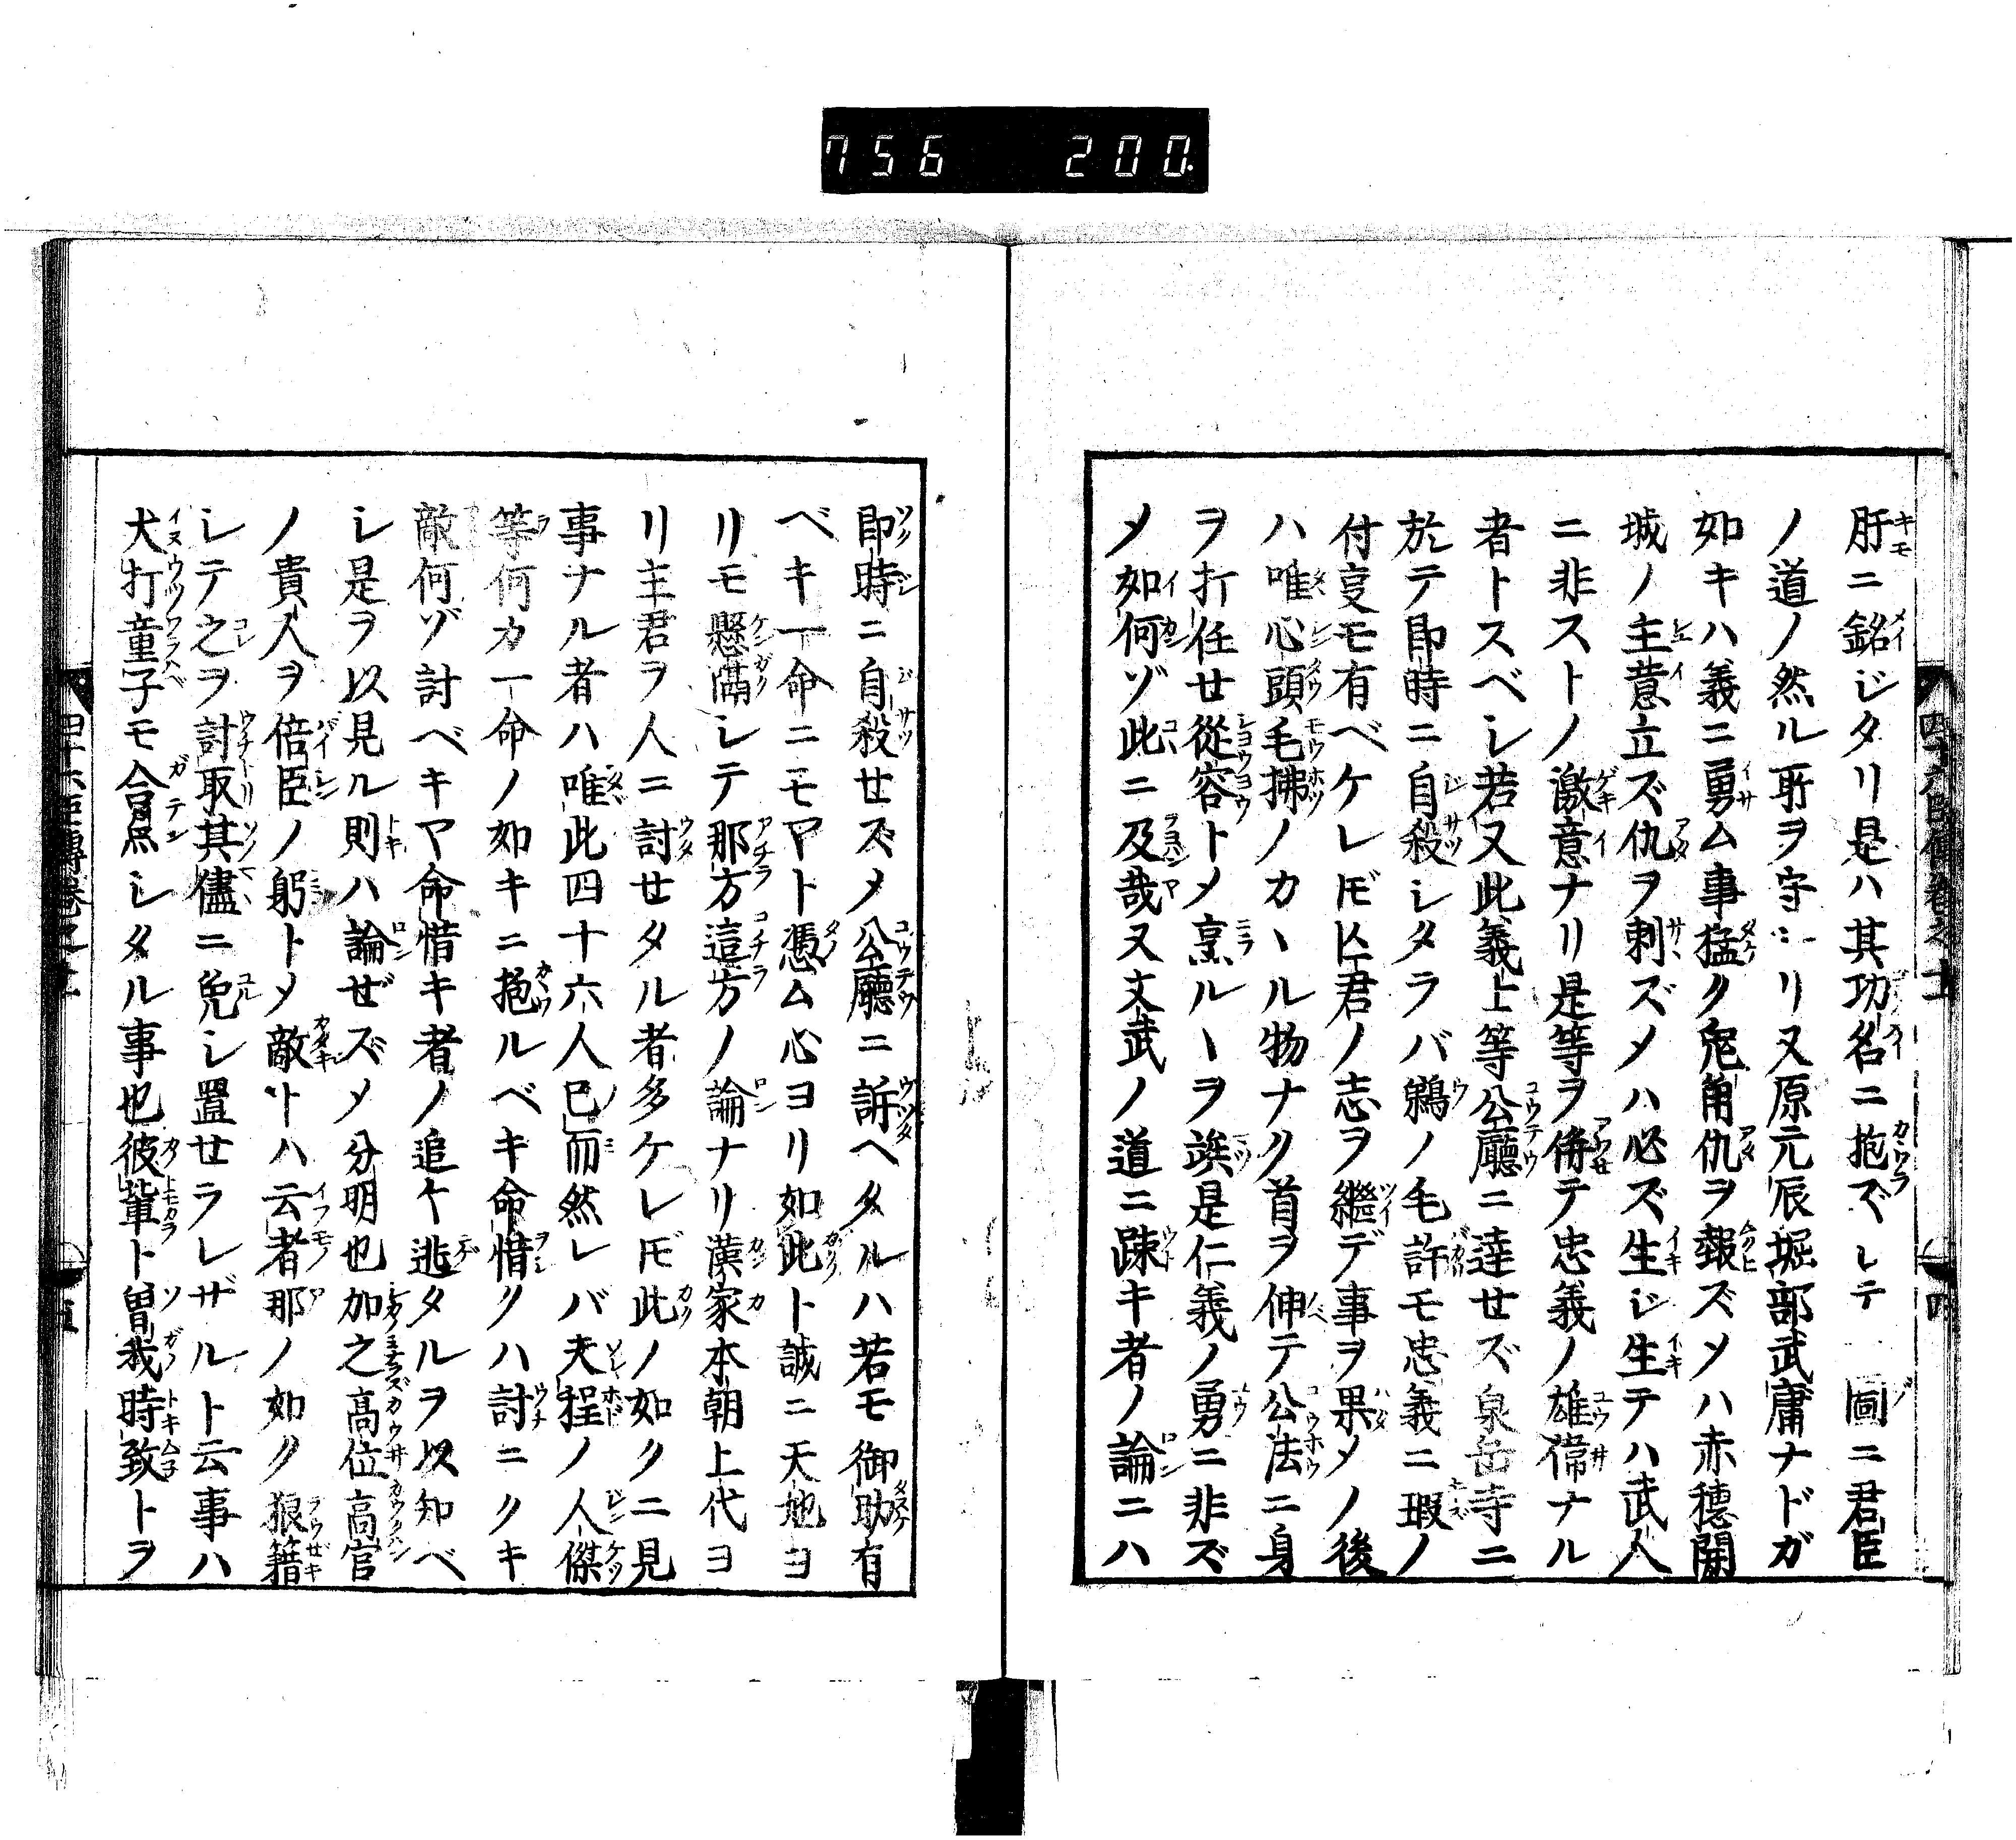 756 200.
肝ニ銘ジタリ是ハ其功名ニ抱ズレテ 圖ニ君臣
ノ道ノ然ル所ヲ守ミリ又原元辰堀部武庸ナドガ
如キハ義ニ勇ム事猛ク兎角仇ヲ報ズメハ赤穗開
城ノ主意立ズ仇ヲ刺ズメハ必ズ生ジ生テハ武人
ニ非ストノ激意ナリ是等ヲ併テ忠義ノ雄偉ナル
者トスベシ若又此義上等公廳ニ達セズ泉岳寺ニ
於テ即時ニ自殺シタラバ鵜ノ毛許モ忠義ニ瑕ノ
付叓モ有ベケレ𪜈臣君ノ志ヲ繼デ事ヲ果メノ後
ハ唯心頭毛拂ノカヽル物ナク首ヲ伸テ公法ニ身
ヲ打任せ從容トメ烹ルヽヲ竢是仁義ノ勇ニ非ズ
メ如何ゾ此ニ及哉又文武ノ道ニ踈キ者ノ論ニハ
即時ニ自殺せズメ公廳ニ訴ヘタルハ若モ御助有
ベキ一命ニモヤト憑ム心ヨリ如此ト誠ニ天地ヨ
リモ懸隔レテ那方這方ノ論ナリ漢家本朝上代ヨ
リ主君ヲ人ニ討せタル者多ケレ𪜈此ノ如クニ見
事ナル者ハ唯此四十六人已而然レバ夫程ノ人傑
等何カ一命ノ如キニ抱ルベキ命惜クハ討ニクキ
敵何ゾ討ベキヤ命惜キ者ノ追ケ逃タルヲ以知ベ
シ是ヲ以見ル則ハ論ぜズメ分明也加之高位高官
ノ貴人ヲ倍臣ノ躬トメ敵トハ云者那ノ如ク狼籍
レテ之ヲ討取其儘ニ免シ置せラレザルト云事ハ
犬打童子モ合点シタル事也彼輩ト曽我時致トヲ